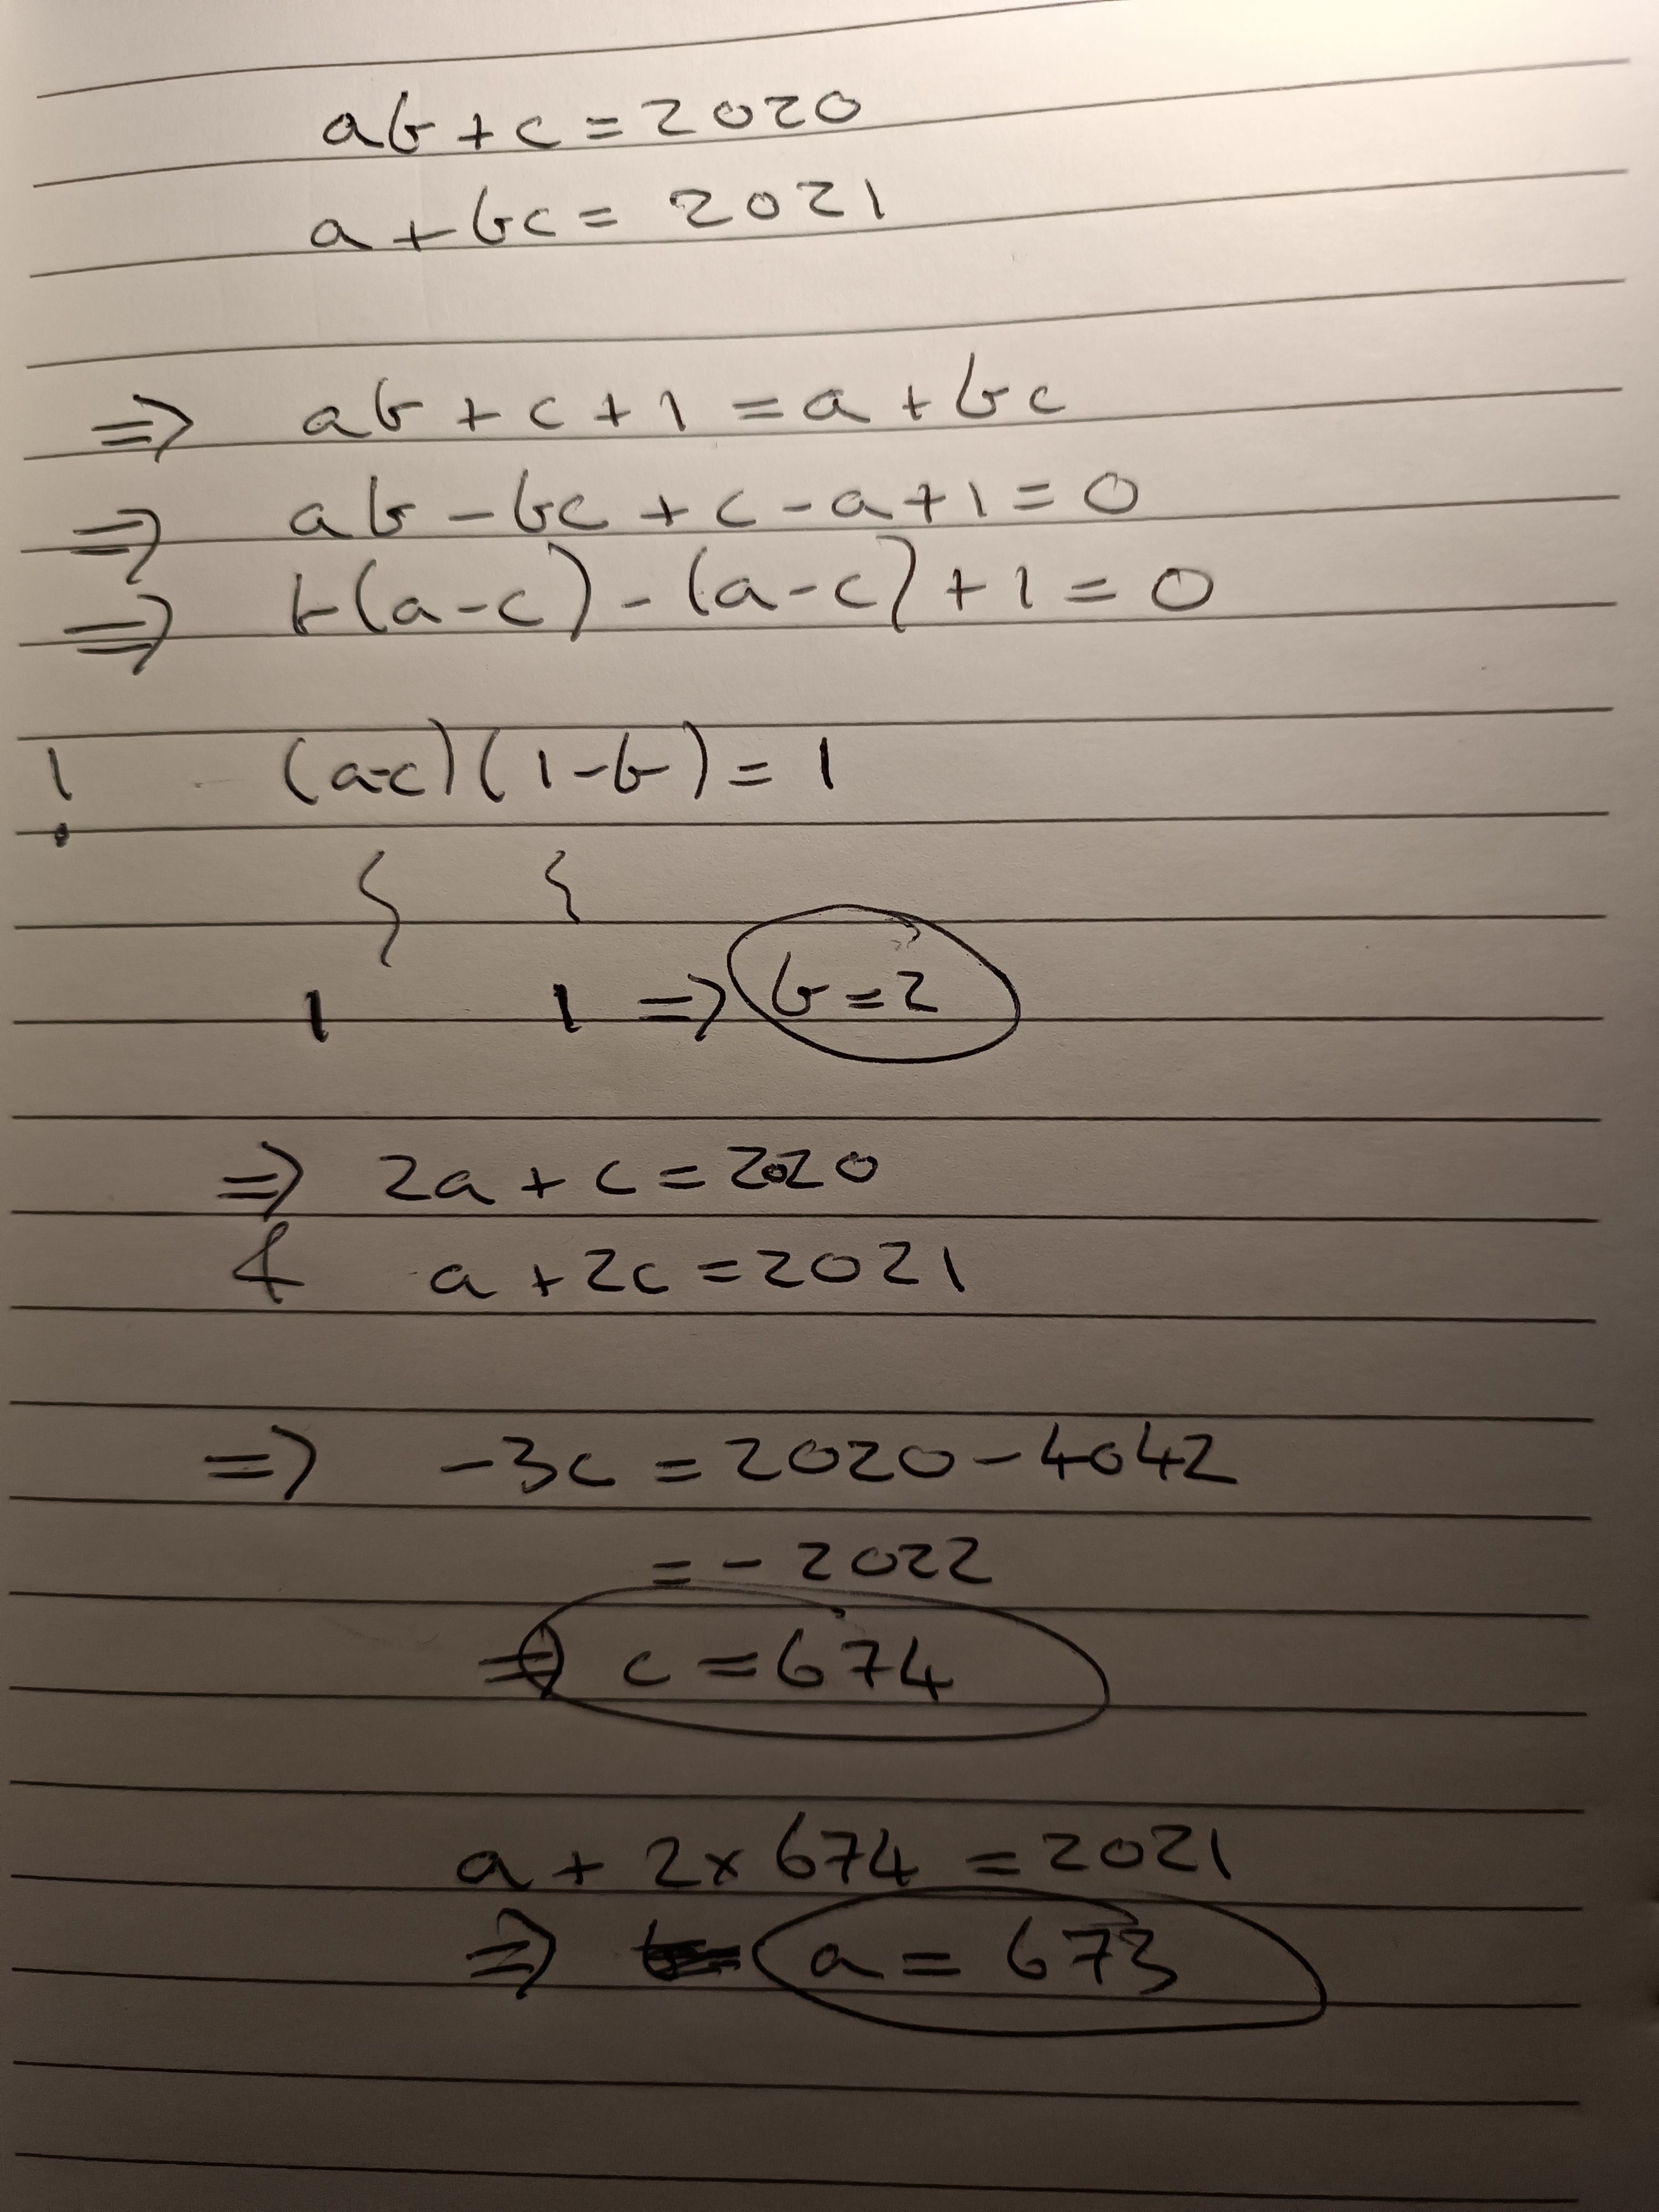 ab + c = 2020
a + bc = 2021
⇒ ab + c + 1 = a + bc
⇒ ab - bc + c - a + 1 = 0
⇒ b(a-c) - (a-c) + 1 = 0
! (a-c)(1-b) = 1
1 1 ⇒ b = 2
⇒ 2a + c = 2020
& a + 2c = 2021
⇒ -3c = 2020 - 4042
= - 2022
⇒ c = 674
a + 2 × 674 = 2021
⇒ a = 673